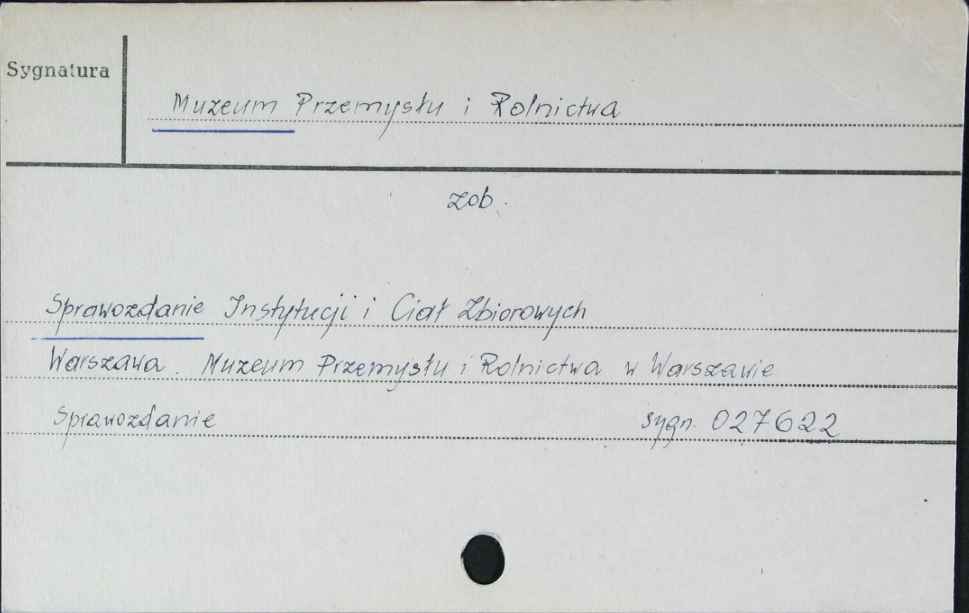 Sygnatura
Muzeum Przemysłu i Rolnictwa
zob.
Sprawozdanie Instytucji i Ciał Zbiorowych
Warszawa. Muzeum Przemysłu i Rolnictwa w Warszawie
Sprawozdanie sygn. 027622